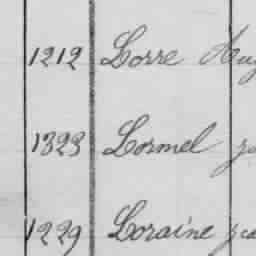 1212 Lorre
1323 Lormel
1229 Loraine